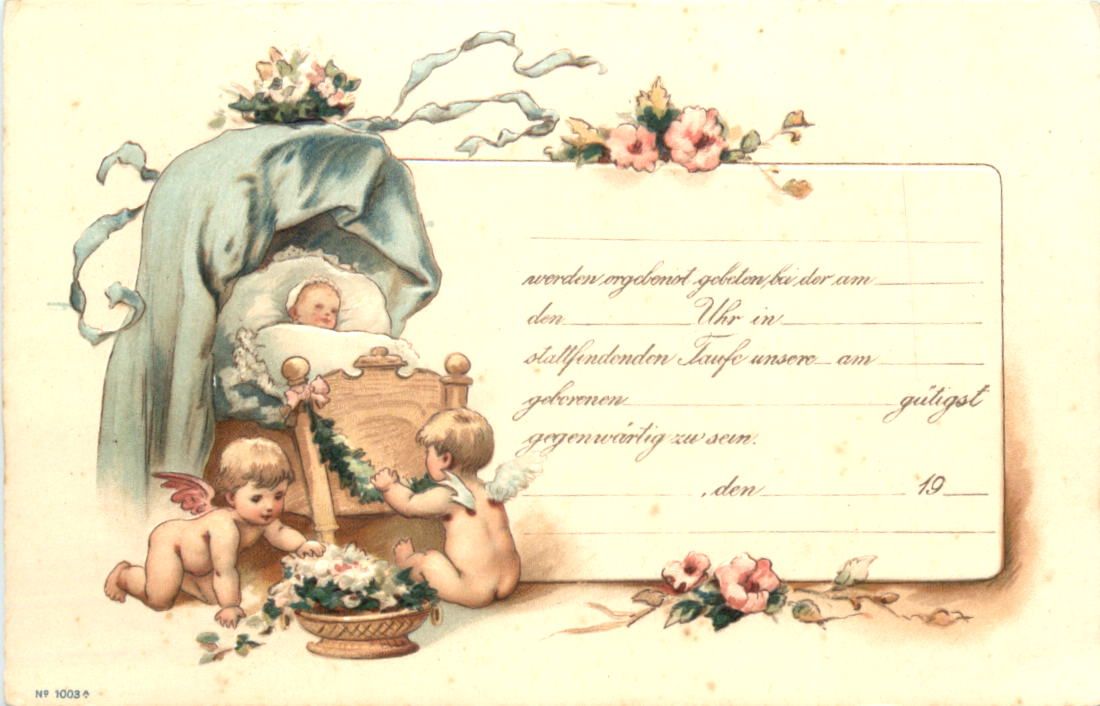 werden ergebenst gebeten, bei der am
den Uhr in
stattfindenden Taufe unsere am
geborenen gütigst
gegenwärtig zu sein.
, den 19
No 1003